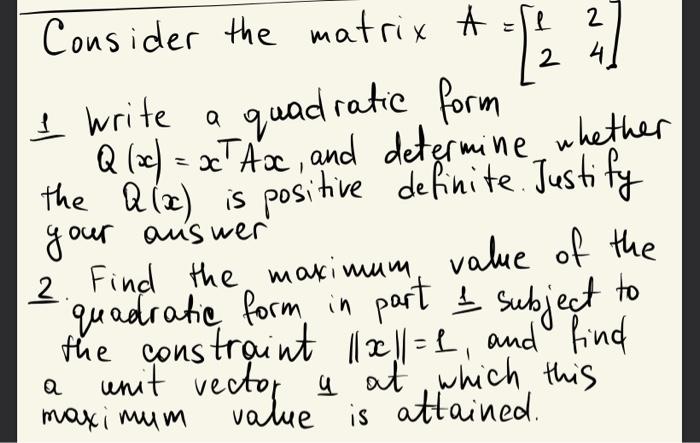 Consider the matrix A = [1 2
2 4]
1 Write a quadratic form
Q(x) = xᵀAx, and determine whether
the Q(x) is positive definite. Justify
your answer
2. Find the maximum value of the
quadratic form in part 1 subject to
the constraint ||x|| = 1, and find
a unit vector u at which this
maximum value is attained.